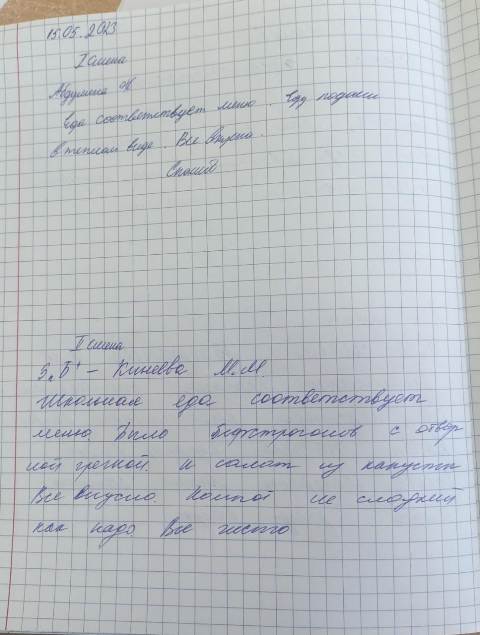 15.05.2023
I смена
Абдулина К.
Еда соответствует меню. еду подали
в теплом виде. Все вкусно.
Спасибо
II смена
5 "Б" - Кинеева М.М.
Школьная еда соответствует
меню. Было бефстроганов с отвар
ной гречкой. и салат из капусты
Все вкусно. Компот не сладкий
как надо. Все чисто